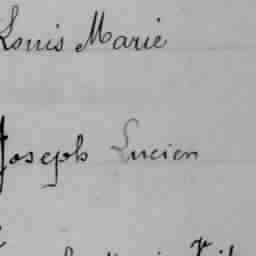 Louis Marie
Joseph Lucien